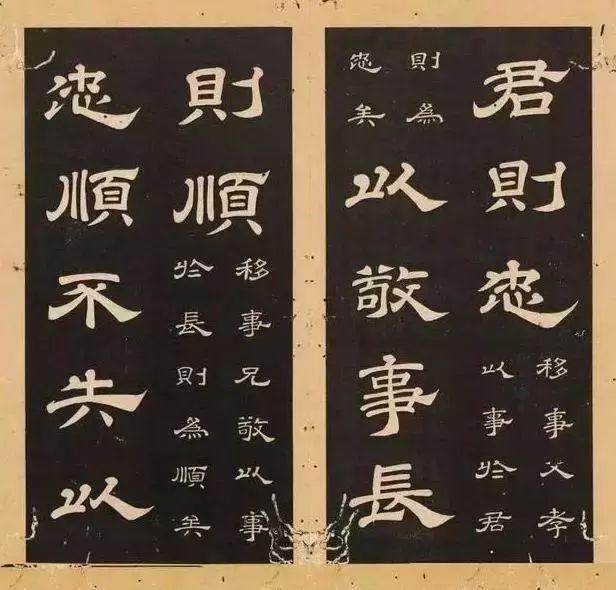 君則忠
移事父孝
以事於君
則為
忠矣
以敬事長
則順
移事兄敬以事
於長則為順矣
忠順不失以